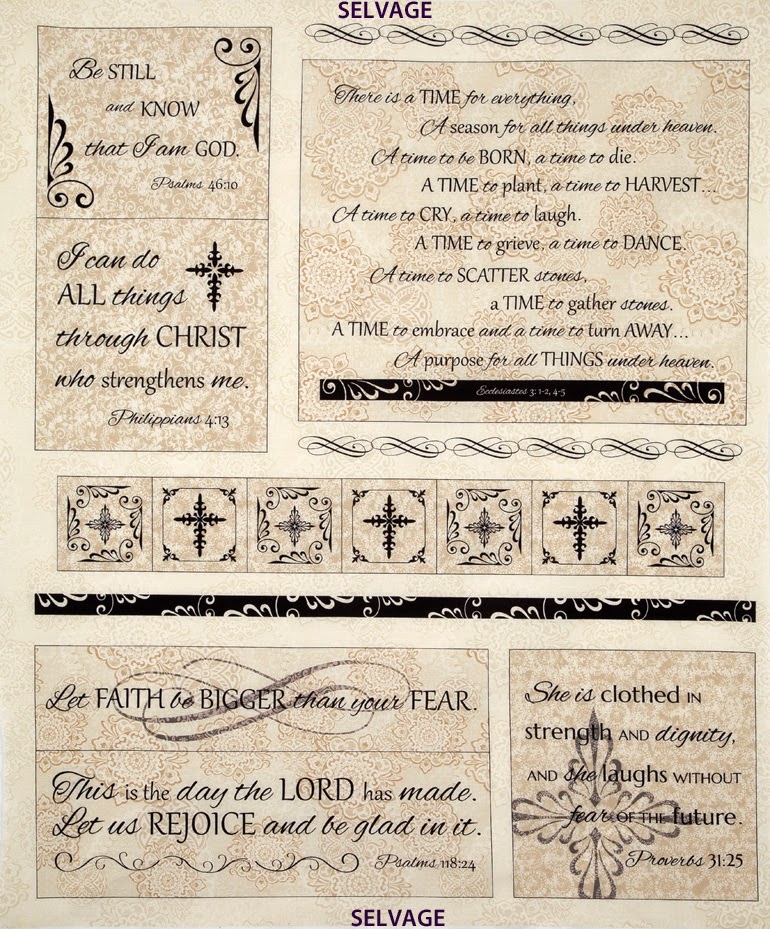 SELVAGE
Be STILL
and KNOW
that I am GOD.
Psalms 46:10
I can do
ALL things
through CHRIST
who strengthens me.
Philippians 4:13
There is a TIME for everything,
A season for all things under heaven.
A time to be BORN, a time to die.
A TIME to plant, a time to HARVEST...
A time to CRY, a time to laugh.
A TIME to grieve, a time to DANCE.
A time to SCATTER stones,
a TIME to gather stones.
A TIME to embrace and a time to turn AWAY...
A purpose for all THINGS under heaven.
Ecclesiastes 3: 1-2, 4-5
Let FAITH be BIGGER than your FEAR.
This is the day the LORD has made.
Let us REJOICE and be glad in it.
Psalms 118:24
She is clothed IN
strength AND dignity,
AND she laughs WITHOUT
fear OF THE future.
Proverbs 31:25
SELVAGE